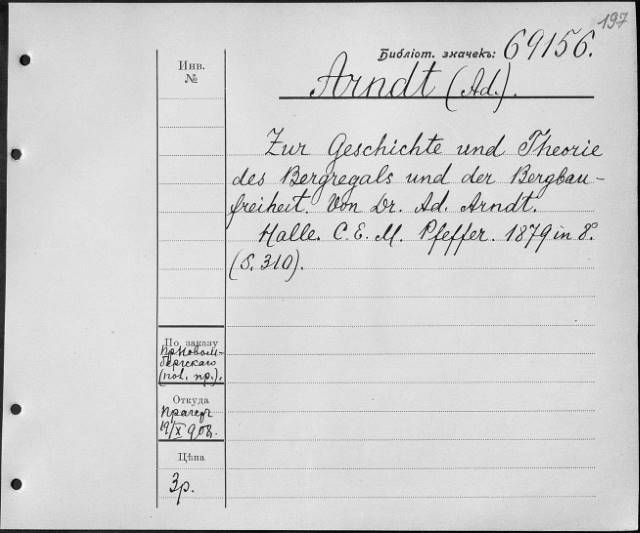 197
Библіот. значекъ: 69156.
Инв.
№
Arndt (Ad.).
Zur Geschichte und Theorie
des Bergregals und der Bergbau-
freiheit. Von Dr. Ad. Arndt.
Halle. C. E. M. Pfeffer. 1879 in 8°.
(S. 310).
По заказу
(пол. пр.).
Откуда
19/X 908.
Цѣна
3р.